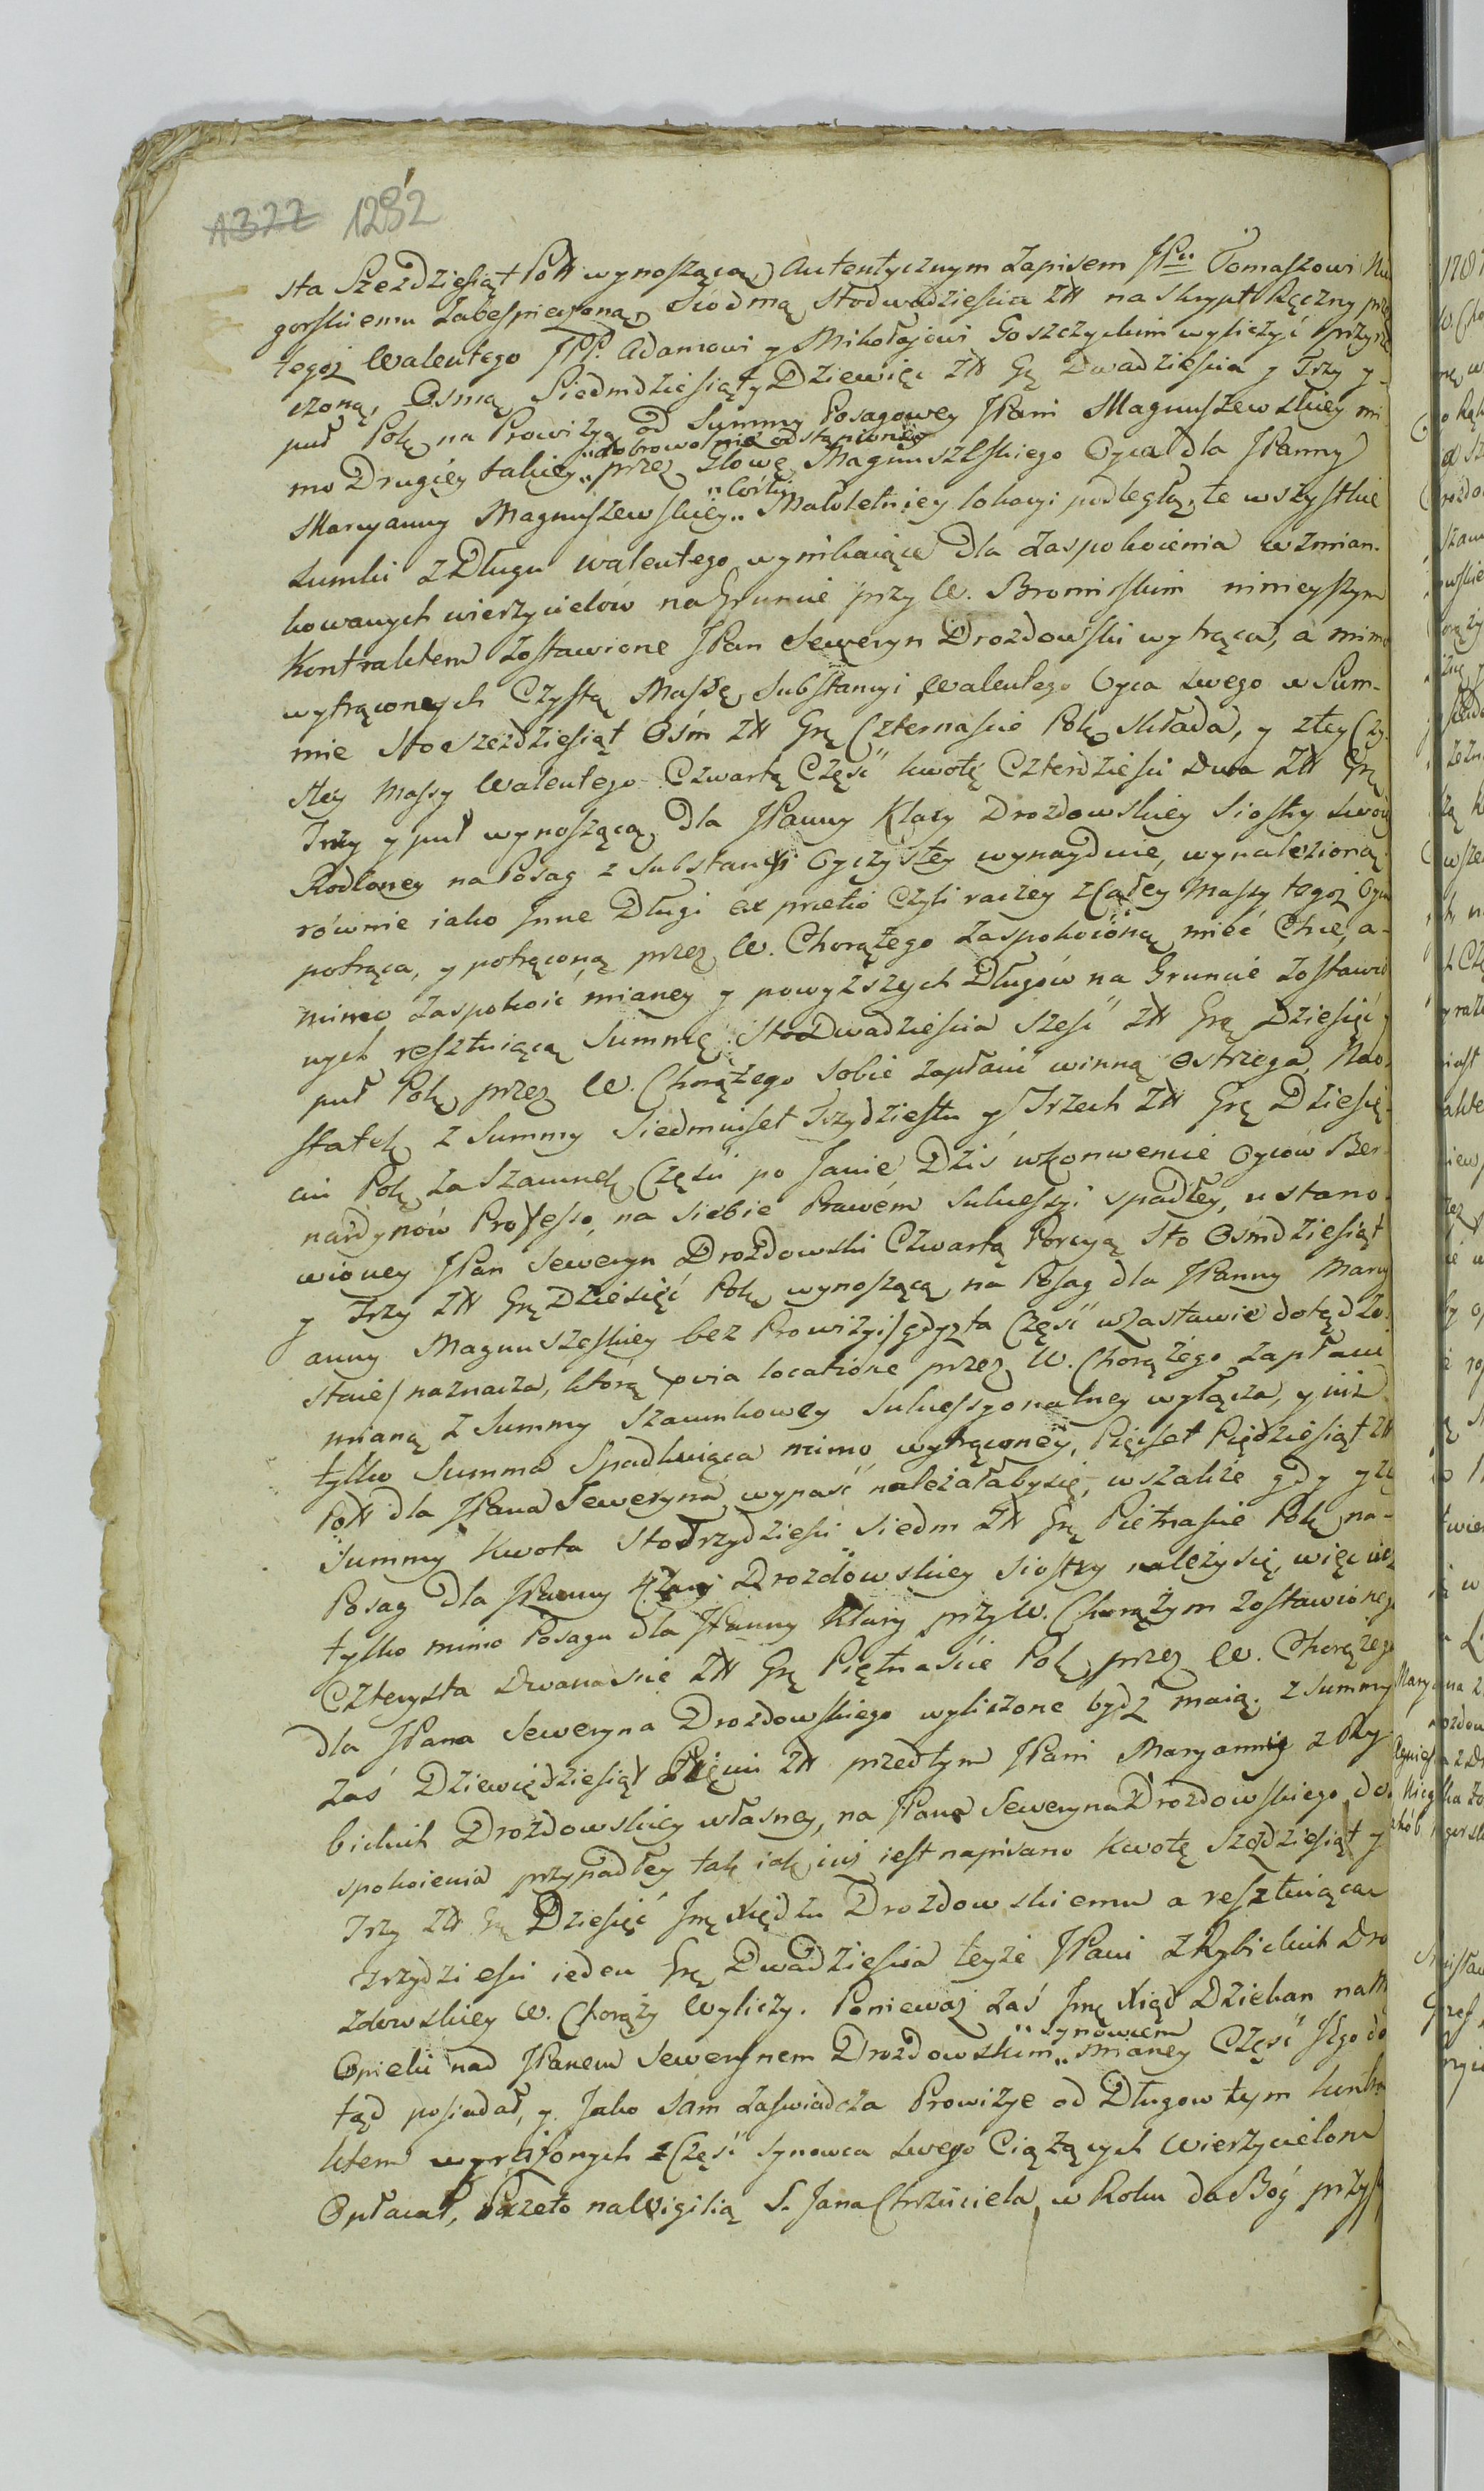 1282
sta Sześdziesiąt Pott wynoszącą Autentycznym Zapisem JPu Tomaszowi
gorskiemu Zabespieczoną, Siodmą Stodwadzieścia Złł na Skrypt Ręczny prze
tegoż Walentego JPP. Adamowi y Mikołajowi Goszczyckim wyliczyć przyrze
czoną, Osmą Siedmdziesiąt y Dziewięc Złł Grę Dwadzieścia y Trzy y
puł Polę na Prowizyą od Summy Posagowey JPani Magnuszewskiey mi
„dobrowolnie odstąpioney
mo Drugiey takiey „ przez Głowę Magnuszeskiego Oyca dla JPanny
„Córki
Maryanny Magnuszewskiey „ Małoletniey lokacyi podległą, te wszystkie
Sumki z Długu Walentego wynikaiące dla Zaspokoienia wzmian-
kowanych wierzycielów na Gruncie przy W. Bromirskim ninieyszym
Kontraktem Zostawione JPan Seweryn Drozdowski wytrąca, a mimo
wytrąconych Czystą Massę Substancyi Walentego Oyca Swego w Sum-
mie Sto Sześdziesiąt Ośm Złł Grę Czternaście Polę składa, y z tey Czy-
stey Massy Walentego Czwartą Część kwotę Czterdzieści Dwa Złł Grę
Trzy y puł wynoszącą, dla JPanny Klary Drozdowskiey Siostry Swoiey
Rodzoney na Posag z Substancyi Oyczystey wynayduie, wynalezioną
równie iako Jnne Długi ex pretio Czyli raczey z Całey Massy tegoż Oyca
potrąca, y potrąconą przez W. Chorążego Zaspokoióną mieć Chce, a-
mimo Zaspokoić mianey y powyższych Długów na Gruncie Zostawio
nych resztuiącą Summę Sto Dwadzieścia Sześć Złł Grę Dziesięć y
puł Polę przez W. Chorążego Sobie Zapłacić winną Ostrzega, Nao-
statek z Summy Siedmiuset Trzydziestu y Trzech Złł Grę Dziesię-
ciu Polę Za Szacunek Części po Janie Dziś w Konwencie Oyców Ber-
nardynów Professie, na siebie Prawem Sukcessyi spadłey, ustano-
wioney JPan Seweryn Drozdowski Czwartą Porcyą Sto Ośmdziesiąt
y Trzy Złł Grę Dziesięć Polę wynoszącą na Posag dla JPanny Mary
anny Magnuszeskiey bez Prowizyi /gdyż ta Część w Zastawie dotąd Zo-
staie/ naznacza, którą via locatione przez W. Chorążego Zapłacić
mianą z Summy Szacunkowey Sukcessyonalney wyłącza, y iuż
tylko Summa Spadkuiąca mimo wytrąconey, Pięćset Pięćdziesiąt Złł
Pott dla JPana Seweryna wypaść należałaby się, wszakże gdy y z tę
Summy Kwota Stotrzydzieści Siedm Złł Grę Pietnaście Polę na-
Posag dla JPanny Klary Drozdowskiey Siostry należy się, więc iuż
tylko mimo Posagu dla JPanny Klary przy W. Chorążym Zostawionego
Czterysta Dwanaście Złł Grę Piętnaście Polę przez W. Chorążego
dla JPana Seweryna Drozdowskiego wyliczone bydź maią. z Summy
Zaś Dziewięćdziesiąt Pięciu Złł przedtym JPani Maryannie z Ry-
bickich Drozdowskiey własney, na JPana Seweryna Drozdowskiego do
spokoienia przypadłey tak iak iuż iest napisano Kwotę Sześdziesiąt y
Trzy Złł Grę Dziesięć Jmę Xiędzu Drozdowskiemu a resztuiącą
Trzydzieści ieden Grę Dwadzieścia teyże JPani z Rybickich Dro
zdowskiey W. Chorąży Wyliczy. Ponieważ Zaś Jmę Xiąd Dziekan na
„Synowcem
Opieki nad JPanem Sewerynem Drozdowskim „ mianey Część Jego do
tąd posiadał, y Jako Sam Zaświadcza Prowizye od Długow tym kontra
ktem wyrażonych z Część Synowca Swego Ciążących Wierzycielom
Opłacał, Przeto na Wigilią S. Jana Chrzciciela w Roku da Bóg przysz